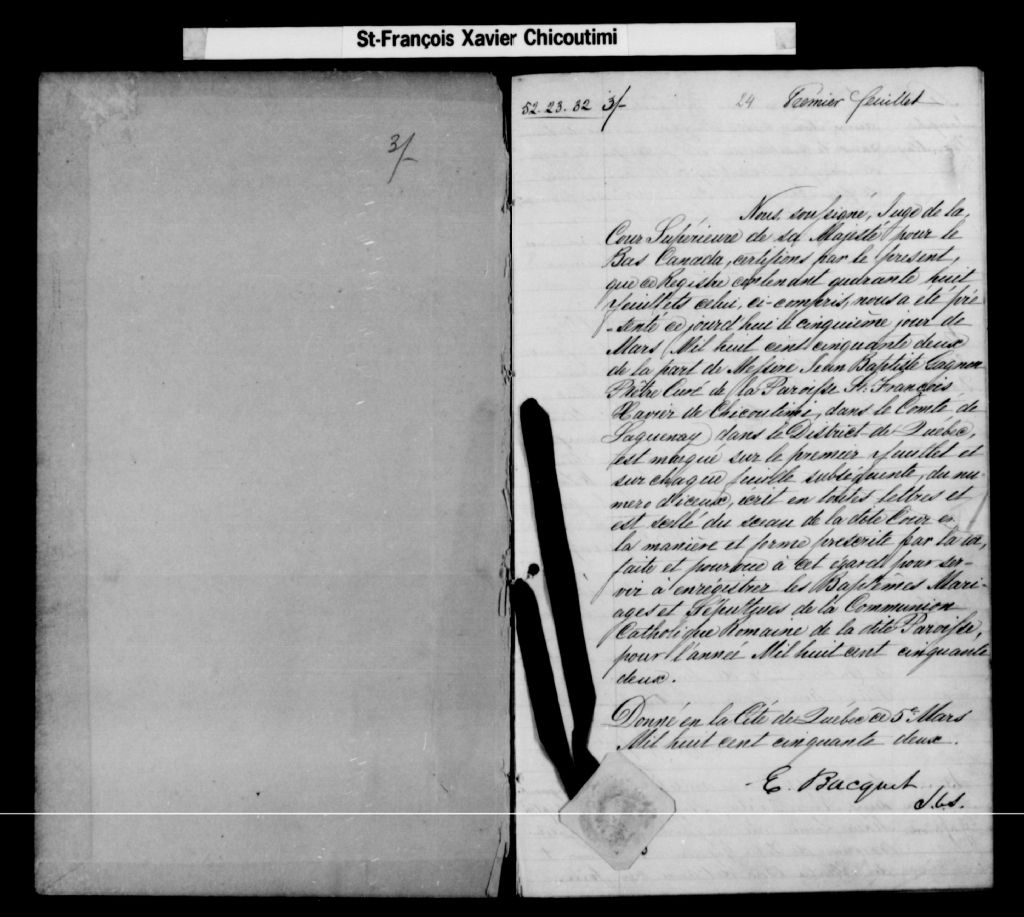 St-François Xavier Chicoutimi
3/-
52. 23. 32 3/- 24 Premier feuillet
Nous, soussigné, Juge de la
Cour Supérieure de sa Majesté pour le
Bas Canada, certifions par le présent,
que ce Registre contenant quarante huit
feuillets celui, ci-compris, nous a été pré
-senté ce jourd'hui le cinquième jour de
Mars Mil huit cent cinquante deux
de la part de Messire Jean Baptiste Gagnon
Prêtre Curé de la Paroisse St. François
Xavier de Chicoutimi, dans le Comté de
Saguenay dans le District de Québec,
est marqué sur le premier feuillet et
sur chaque feuille subséquente, du nu-
mero d'iceux, écrit en toutes lettres et
est scellé du sceau de la dite Cour en
la manière et forme prescrite par la loi,
faite et pourvue à cet égard pour ser-
vir à enrégistrer les Baptêmes Mari-
ages et Sépultures de la Communion
Catholique Romaine de la dite Paroisse,
pour l'année Mil huit cent cinquante
deux.
Donné en la Cité de Québec ce 5e Mars
Mil huit cent cinquante deux.
E. Bacquet
J.C.S.